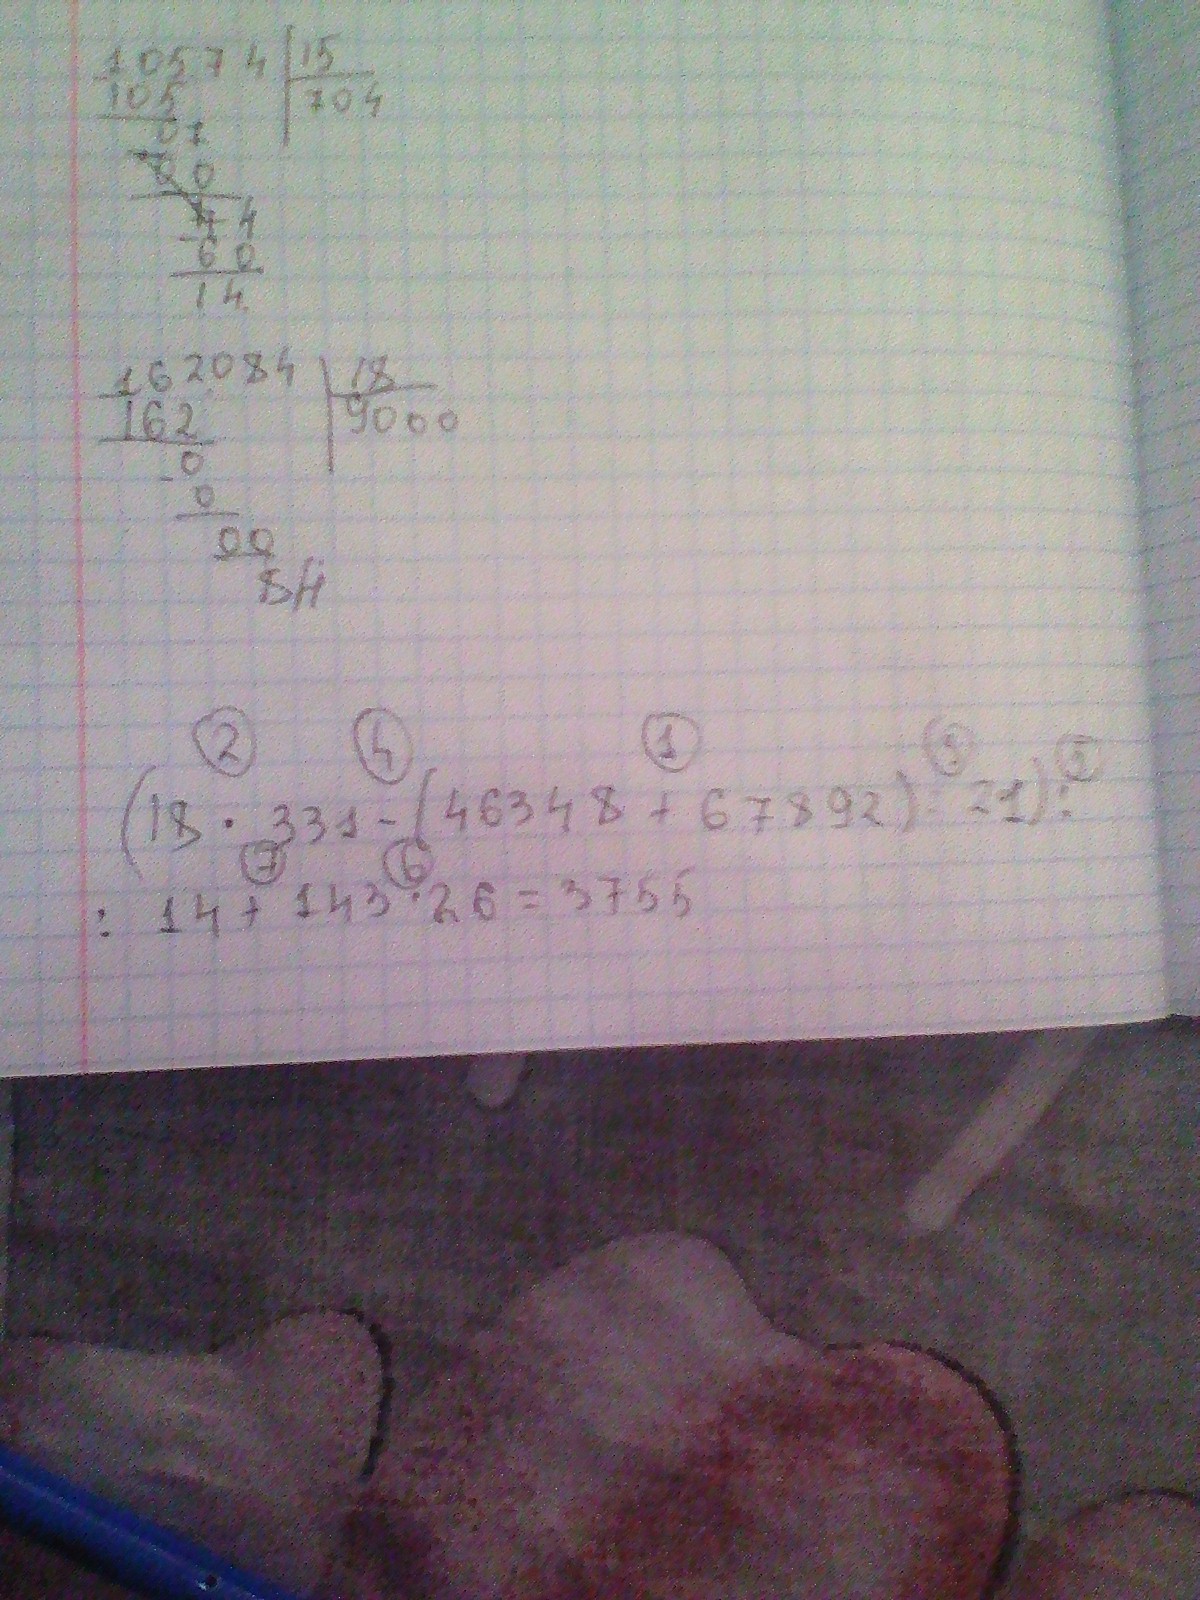 10574 | 15
105 704
07
00
74
60
14
162084 | 18
162 9000
0
0
00
84
2 4 1 3 5
(18 · 331 - (46348 + 67892) : 21) :
7 6
: 14 + 143 · 26 = 3755